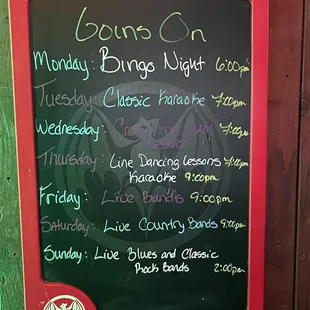 Goins On
Monday: Bingo Night 6:00pm
Tuesday: Classic Karaoke 7:00pm
Wednesday: 7:00pm
Thursday: Line Dancing Lessons 7:00pm
Karaoke 9:00pm
Friday: Live Bands 9:00pm
Saturday: Live Country Bands 9:00pm
Sunday: Live Blues and Classic
Rock Bands 2:00pm